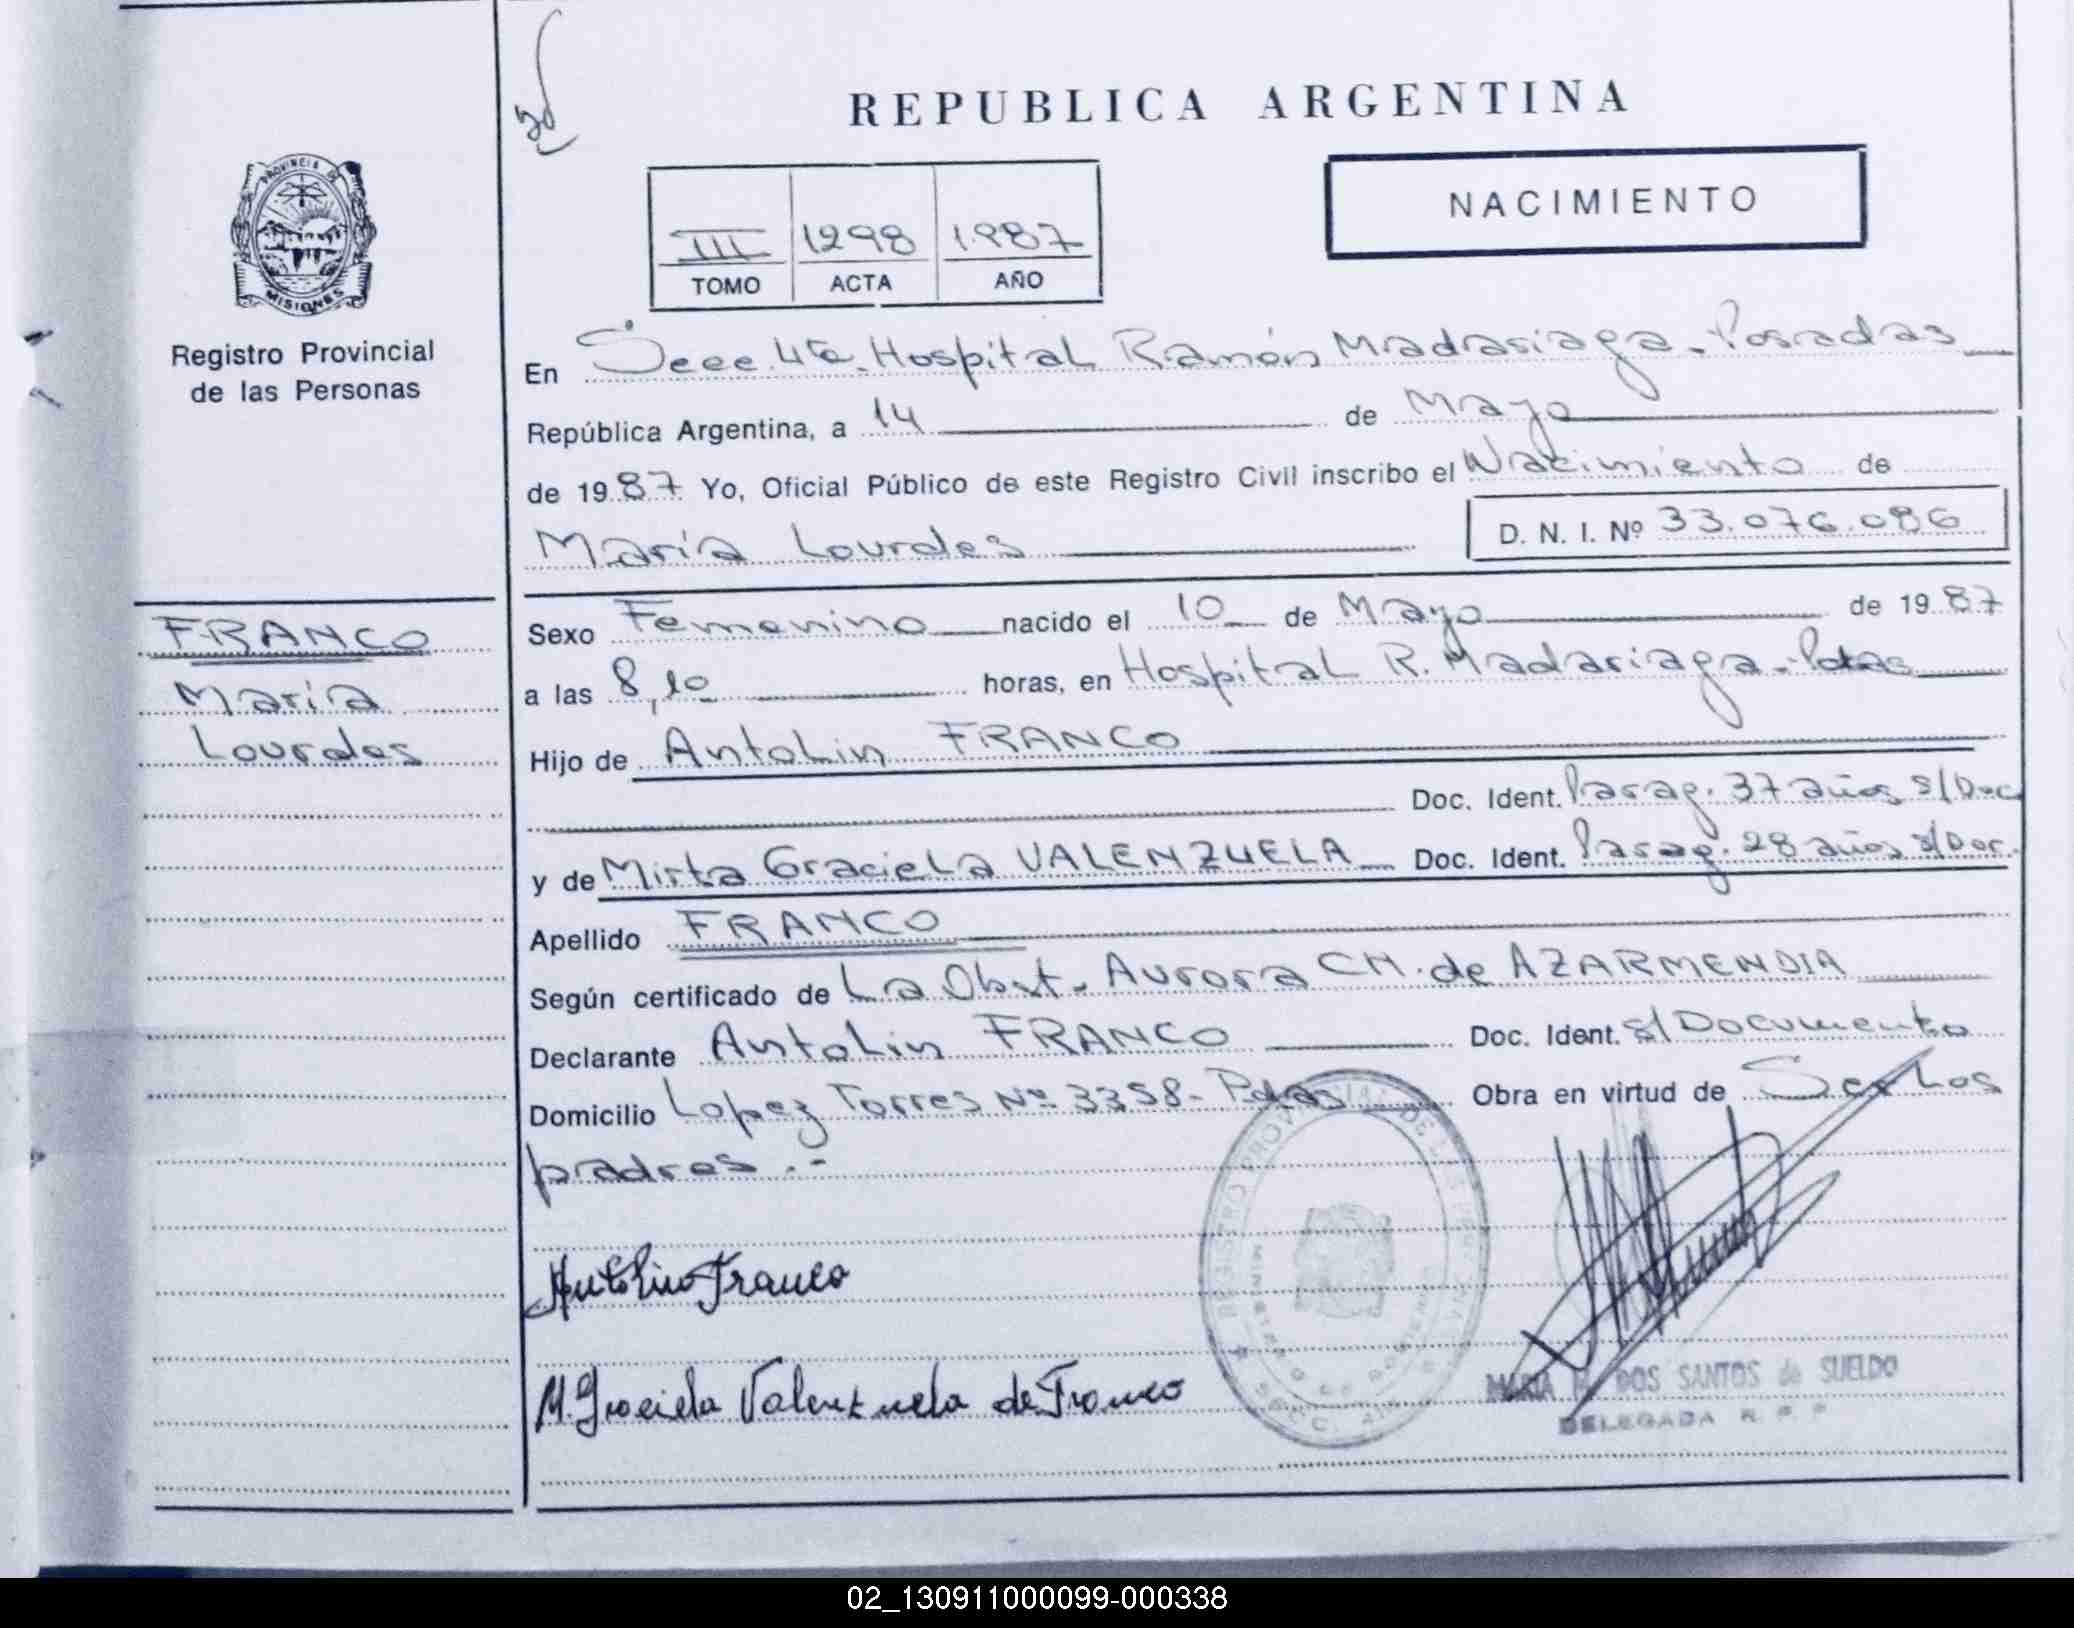 REPUBLICA ARGENTINA
NACIMIENTO
PROVINCIA DE
MISIONES
Registro Provincial
de las Personas
III 1298 1987
TOMO ACTA AÑO
En Secc. 4ta. Hospital Ramón Madariaga - Posadas
República Argentina, a 14 de Mayo
de 1987 Yo, Oficial Público de este Registro Civil inscribo el Nacimiento de
María Lourdes D. N. I. Nº 33.076.086
FRANCO
María
Lourdes
Sexo Femenino nacido el 10 de Mayo de 1987
a las 8,10 horas, en Hospital R. Madariaga - Pdas
Hijo de Antolin FRANCO
Doc. Ident. Parag. 37 años s/Doc
y de Mirta Graciela VALENZUELA Doc. Ident. Parag. 28 años s/Doc.
Apellido FRANCO
Según certificado de La Obst. Aurora CH. de AZARMENDIA
Declarante Antolin FRANCO Doc. Ident. s/Documento
Domicilio Lopez Torres Nº 3358 - Pdas Obra en virtud de Ser los
padres.-
Antolin Franco
M. Graciela Valenzuela de Franco
REGISTRO PROVINCIAL DE LAS
MINISTERIO DE GOBIERNO
SECC. 4ta
MARIA DOS SANTOS de SUELDO
DELEGADA R. P. P.
02_130911000099-000338